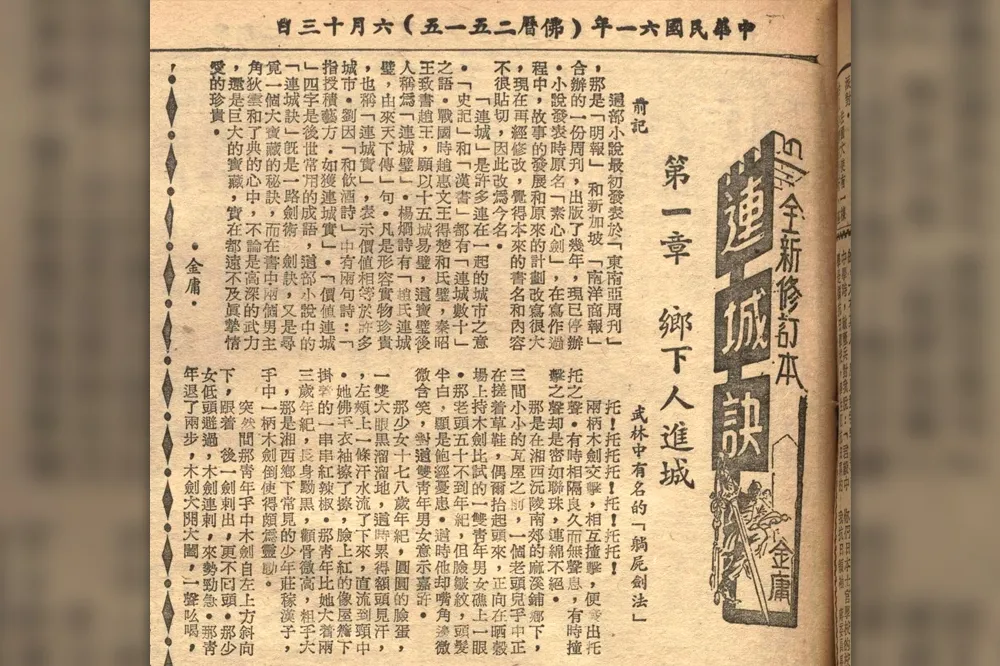 中華民國六一年（佛曆二五一五）六月十三日
全新修訂本
連城訣
金庸
第一章 鄉下人進城
前記
這部小說最初發表於「東南亞周刊」
，那是「明報」和新加坡「南洋商報」
合辦的一份周刊，出版了幾年，現已停辦
。小說發表時原名「素心劍」，在寫作過
程中，故事的發展和原來的計劃改寫很大
，現在再經修改，覺得本來的書名和內容
不很貼切，因此改爲今名。
「連城」是許多連在一起的城市之意
。「史記」和「漢書」都有「連城數十」
之語。戰國時趙惠文王得楚和氏璧，秦昭
王致書趙王，願以十五城易璧，這寶璧後
人稱爲「連城璧」。楊烱詩有「趙氏連城
璧，由來天下傳」句。凡是形容實物珍貴
，也稱「連城寶」，表示價值相等於許多
城市。劉因「和飲酒詩」中有兩句詩：「
指授積藝方。如獲連城寶」。「價值連城
」四字是後世常用的成語，這部小說中的
「連城訣」旣是一路劍術，劍訣，又是尋
覓一個大寶藏的秘訣，而在書中兩個男主
角狄雲和丁典的心中，不論是高深的武力
，還是巨大的寶藏，實在都遠不及眞摯情
愛的珍貴。
·金庸·
武林中有名的「躺屍劍法」
托！托托托！托！托托！
兩柄木劍交擊，相互撞擊，便發出托
托之聲。有時相隔良久而無聲息，有時撞
擊之聲却是密如聯珠，連綿不絕。
那是在湘西沅陵南郊的麻溪鋪鄉下，
三間小小的瓦屋之前，一個老頭兒手中正
在搓着草鞋，偶爾抬起頭來，正向在晒穀
場上持木劍比試的一雙青年男女礁上一眼
。那老頭五十不到年紀，但臉皺紋，頭髮
半白，顯是飽經憂患。這時他却嘴角滲微
微含笑，對這雙青年男女意示嘉許。
那少女十七八歲年紀，圓圓的臉蛋，
一雙大眼黑溜溜地，這時累得額頭見汗，
左頰上一條汗水流了下來，直流到頸中
。她佛手衣袖擦了擦，臉上紅的像屋簷下
掛著的一串串紅辣椒。那青年比她大着兩
三歲年紀，長身黝黑，顴骨微高，粗手大
，那是湘西鄉下常見的少年莊稼漢子，
手中一柄木劍倒使得頗爲靈動。
突然間那青年手中木劍自左上方斜向
下，跟着 後一劍刺出，更不囘頭。那少
女低頭避過，木劍連刺，來勢勁急。那靑
年退了兩步，木劍大開大闔，一聲吆喝，